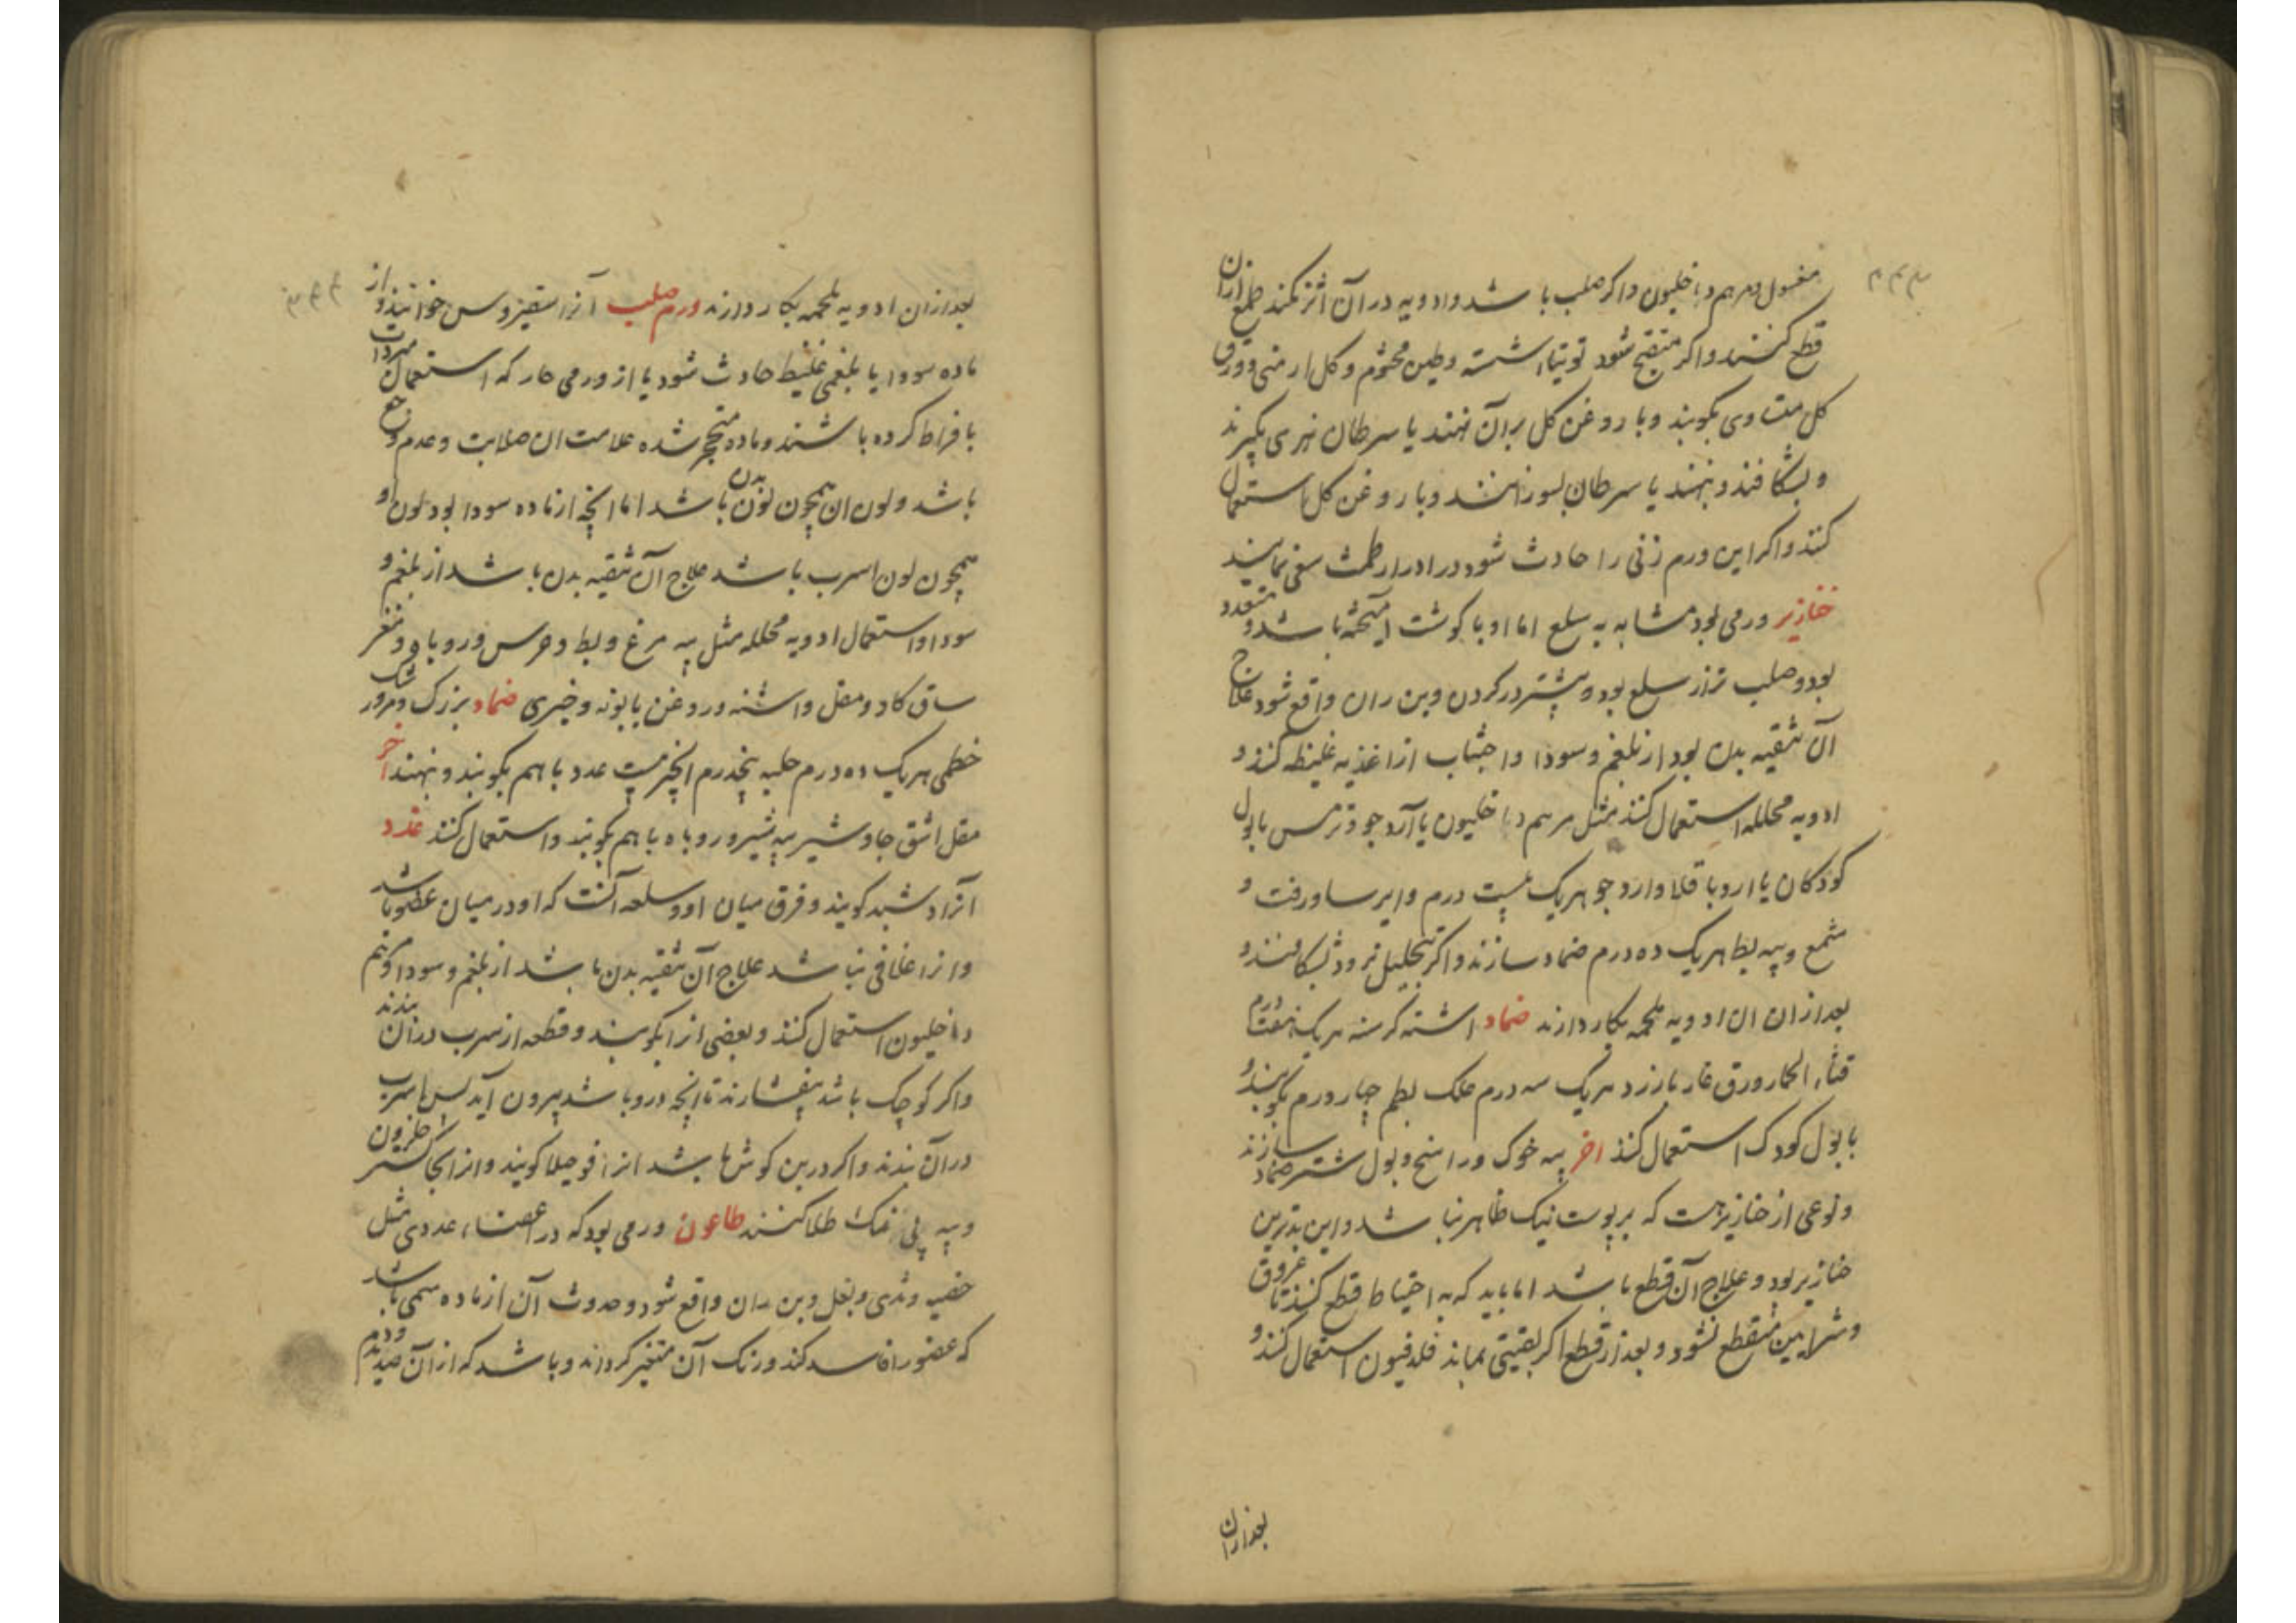 مغسول و مرهم داخلیون و اکر صلب باشد و ادویه در آن اثر نکند طمع از آن
قطع کنند و اکر متقیح شود توتیا شسته و طین مختوم و کل ارمنی و ورق
کل متساوی بکوبند و با روغن کل بر آن نهند یا سرطان نهری بکیرند
و بشکافند و نهند یا سرطان بسوزانند و با روغن کل استعمال
کنند و اکر این ورم زنی را حادث شود در ادرار طمث سعی نمایند
خنازیر ورمی بود مشابه به سلع اما او با کوشت آمیخته باشد و متعدد
بود و صلب تر از سلع بود و بیشتر در کردن و بن ران واقع شود علاج
آن تنقیه بدن بود از بلغم و سودا و اجتناب از اغذیه غلیظه کنند و
ادویه محلله استعمال کنند مثل مرهم داخلیون یا آرد جو و ترمس با بول
کودکان یا ارد باقلا و ارد جو هر یک بیست درم و ایرسا و زفت و
شمع و پیه بط هر یک ده درم ضماد سازند و اکر بتحلیل نرود بشکافند و
بعد از ان ان ادویه ملحمه بکار دارند ضماد اشنه کرسنه هر یک هفت درم
قثاء الحمار ورق غار بارزد هر یک سه درم علک بطم چهار درم بکوبند و
با بول کودک استعمال کنند اخر پیه خوک و راتینج و بول شتر ضماد سازند
و نوعی از خنازیر هست که بر پوست نیک ظاهر نباشد و این بدترین
خنازیر بود و علاج آن قطع باشد اما باید که به احتیاط قطع کنند تا عروق
و شرایین منقطع نشود و بعد از قطع اکر بقیتی بماند فلدفیون استعمال کنند و
بعد از ان
بعد از ان ادویه ملحمه بکار دارند ورم صلب آنرا سقیروس خوانند و از
ماده سودا یا بلغمی غلیظ حادث شود یا از ورمی حار که استعمال مبردات
با فراط کرده باشند و ماده متحجر شده علامت ان صلابت و عدم وجع
باشد و لون ان همچون لون بدن باشد اما انچه از ماده سودا بود لون او
همچون لون اسرب باشد علاج آن تنقیه بدن باشد از بلغم و
سودا و استعمال ادویه محلله مثل پیه مرغ و بط و خرس و روباه و مغز
ساق کاو و مقل و اشنه و روغن بابونه و خیری ضماد بزرک و مرور شک
خطمی هر یک ده درم حلبه پنجدرم انجیر بیست عدد با هم بکوبند و نهند اخر
مقل اشق جاوشیر پیه شیر و روباه با هم بکوبند و استعمال کنند غدد
آنرا دشبد کویند و فرق میان او و سلعه آنست که او در میان عضو باشد
و انرا غلافی نباشد علاج آن تنقیه بدن باشد از بلغم و سودا و مرهم
داخلیون استعمال کنند و بعضی انرا بکوبند و قطعه از سرب در آن بندند
و اکر کوچک باشد بیفشارند تا انچه درو باشد بیرون آید پس اسرب
در آن بندند و اکر در بن کوش باشد انرا فوجیلا کویند و انرا بخاکستر حلزون
و پیه بی نمک طلا کنند طاعون ورمی بود که در اعضاء غددی مثل
خصیه و ثدی و بغل و بن ران واقع شود و حدوث آن از ماده سمی باشد
که عضو را فاسد کند و رنک آن متغیر کرداند و باشد که از آن صدید و دم